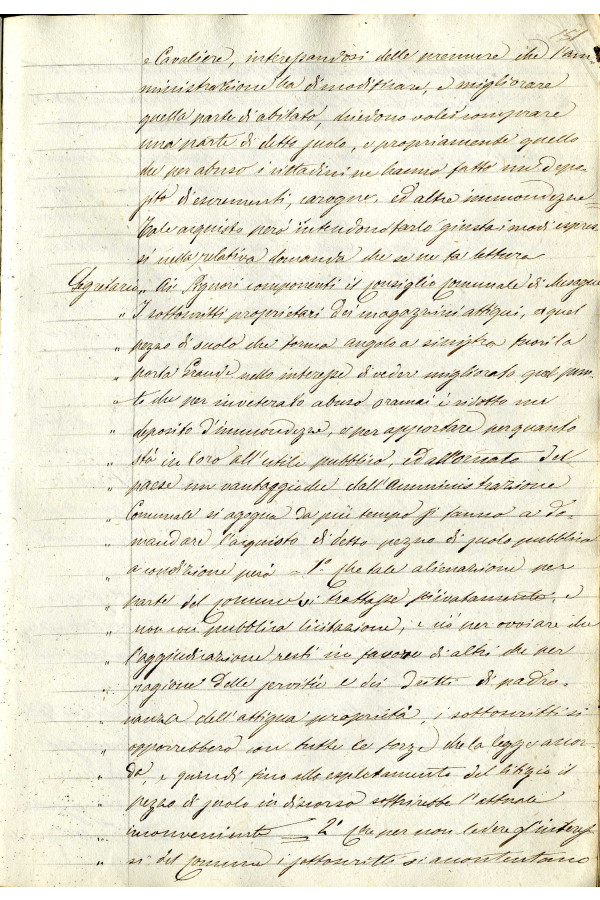 151
e Cavaliere, interessandosi delle premure che l'am-
ministrazione ha di modificare, e migliorare
quella parte di abitato, chiedono voler comprare
una parte di detto suolo, e propriamente quello
che per abuso i cittadini ne hanno fatto un depo-
sito di escrementi, carogne, ed altre immondezze=
Tale acquisto però intendono farlo giusta i modi espres-
si nella relativa domanda che se ne fa lettura
Segretario „ Ai Signori componenti il Consiglio Comunale di Mesagne
„ I sottoscritti proprietari dei magazzini attigui, a quel
„ pezzo di suolo che forma angolo a sinistra fuori la
„ porta Grande nello interesse di veder migliorato quel pun-
„ to che per inveterato abuso oramai è ridotto un
„ deposito d'immondezze, e per apportare perquanto
„ stà in loro all'utile pubblico, ed all'ornato del
„ paese un vantaggio che dall'Amministrazione
„ Comunale si agogna da più tempo si fanno a do-
„ mandare l'acquisto di detto pezzo di suolo pubblico
„ a condizione però = 1° Che tale alienazione per
„ parte del Comune si trattasse privatamente, e
„ non con pubblica licitazione, e ciò per ovviare che
„ l'aggiudicazione resti in favore di altri che per
„ ragione delle servitù e dei dritti di padro-
„ nanza dell'attigua proprietà, i sottoscritti si
„ opporrebbero con tutte le forze che la legge accor-
„ da, e quindi fino allo espletamento del litigio il
„ pezzo di suolo in discorso soffrirebbe l'attuale
„ inconveniente = 2° Che per non ledere gl'interes-
„ si del Comune i sottoscritti si accontentano